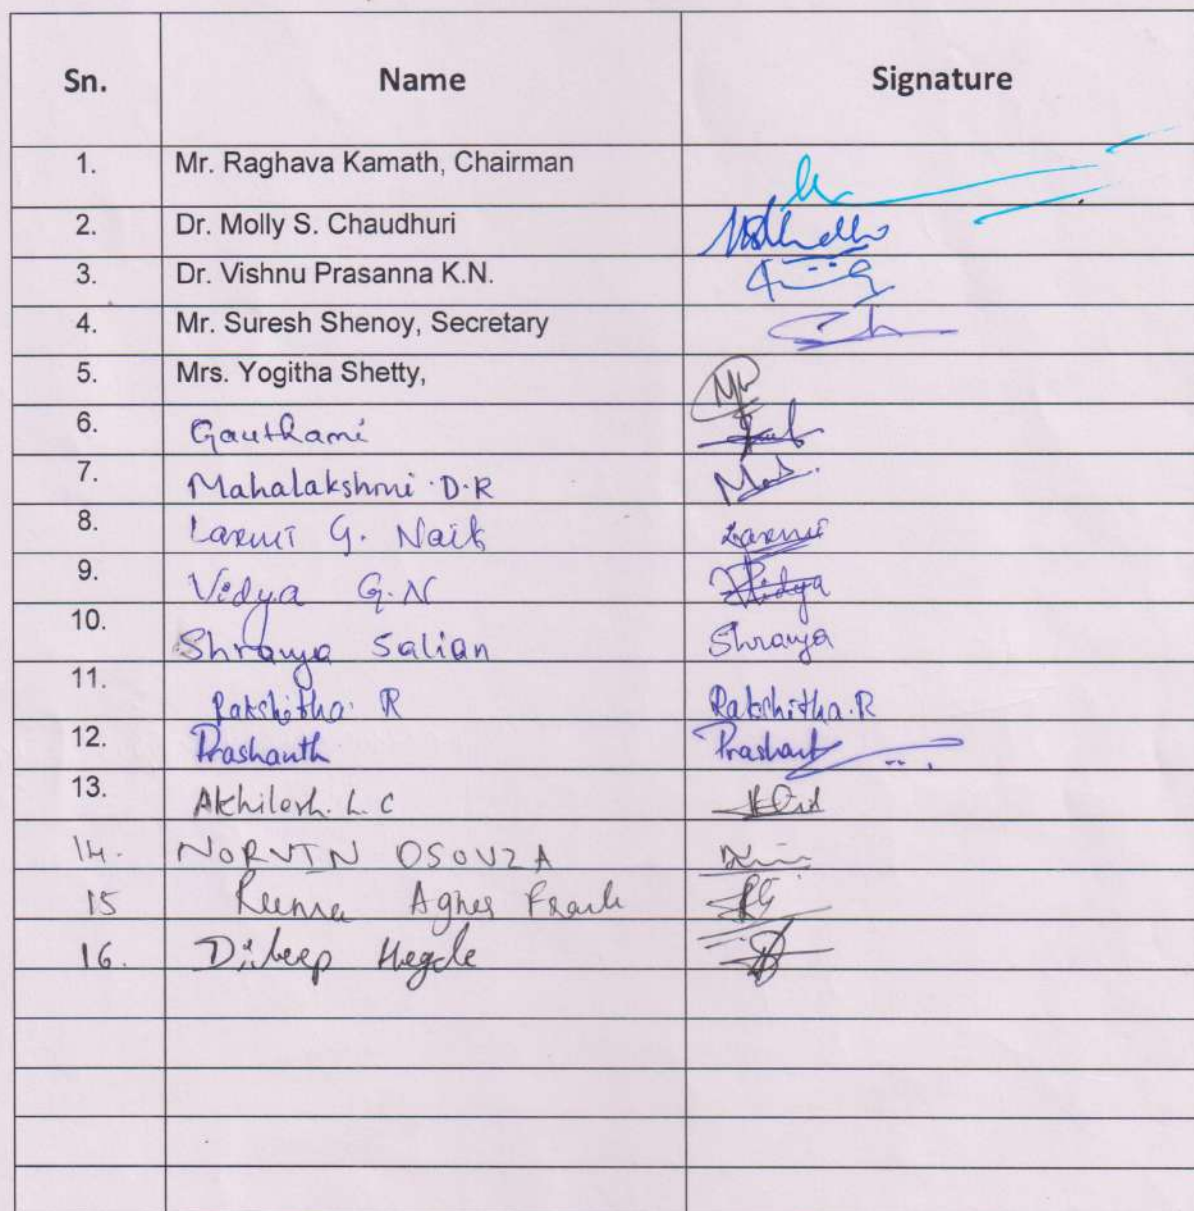 Sn. Name Signature
1. Mr. Raghava Kamath, Chairman
2. Dr. Molly S. Chaudhuri
3. Dr. Vishnu Prasanna K.N.
4. Mr. Suresh Shenoy, Secretary
5. Mrs. Yogitha Shetty,
6. Gauthami
7. Mahalakshmi D.R
8. Laxmi G. Naik Laxmi
9. Vidya G.N Vidya
10. Shravya Salian Shravya
11. Rakshitha R Rakshitha.R
12. Prashanth Prashant
13. Akhilesh. L. C
14. NORVIN DSOUZA
15 Agnes Frank
16. Dileep Hegde